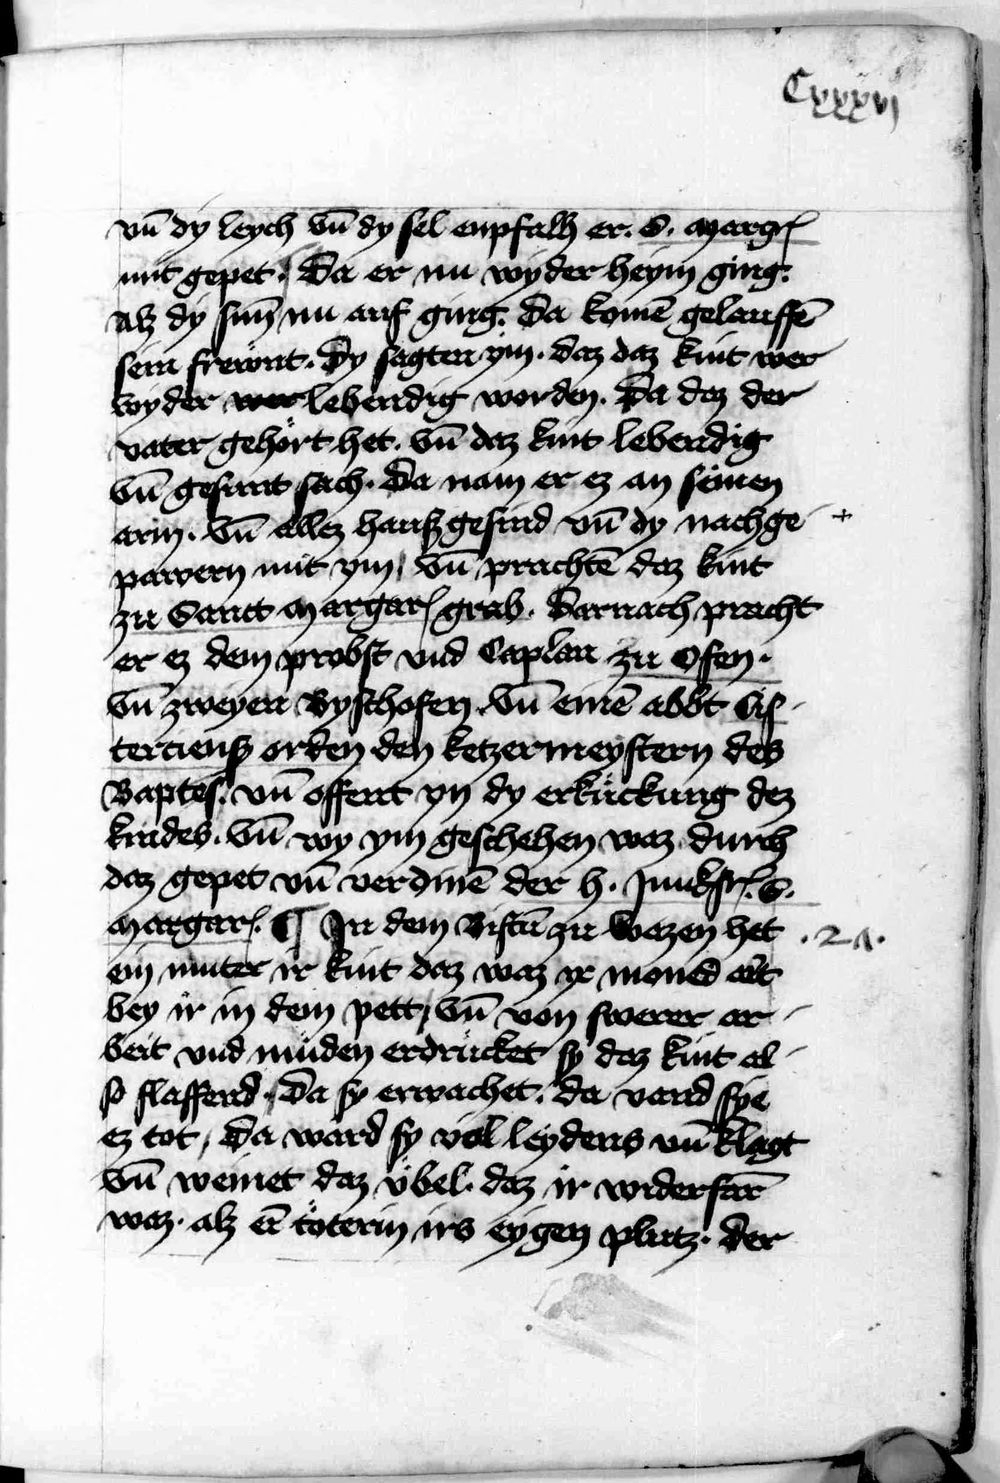 Cxxxvj
vn̄ dy leych vn̄ dy sel enpfalh er. S. margr̄
mit gepet. Da er nu wyder heym ging.
Alz dy sun̄ nu auf ging. Da komē gelauffē
sein frewnt. Dy sagten ym. daz daz kint wer
wyder lebendig worden. Da daz der
vater gehört het. vn̄ daz kint lebendig
vn̄ gesunt sach. Da nam er ez an seinen
arm. vn̄ allez haußgesind vn̄ dy nachge +
pawern mit ym, vn̄ prachtē daz kint
zu Sanct margar̄ grab. Darnach pracht
er ez dem probst vnd Caplan zu Ofen.
vn̄ zweyen Byschofen. vn̄ einē abbt Cis-
terciensß orden den ketzermeystern des
Baptes. vn̄ offent yn dy erkückung dez
kindes. vn̄ wy ym geschehen waz durch
daz gepet vn̄ verdinē der h. Junkfr̄. S.
margar̄. ¶ In dem Bistū zu Wazen het .21.
ein muter ir kint daz waz xx moned alt
bey ir in dem pett, vn̄ von swerer ar-
beit vnd müden erdrücket sy daz kint al-
so slaffend. Da sy erwachet. da vand sye
ez tot, Da ward sy vol leydens vn̄ klagt
vn̄ weinet daz vbel. daz ir widerfarn̄
waz. alz ein̄ töterin irs eygen plutz. der